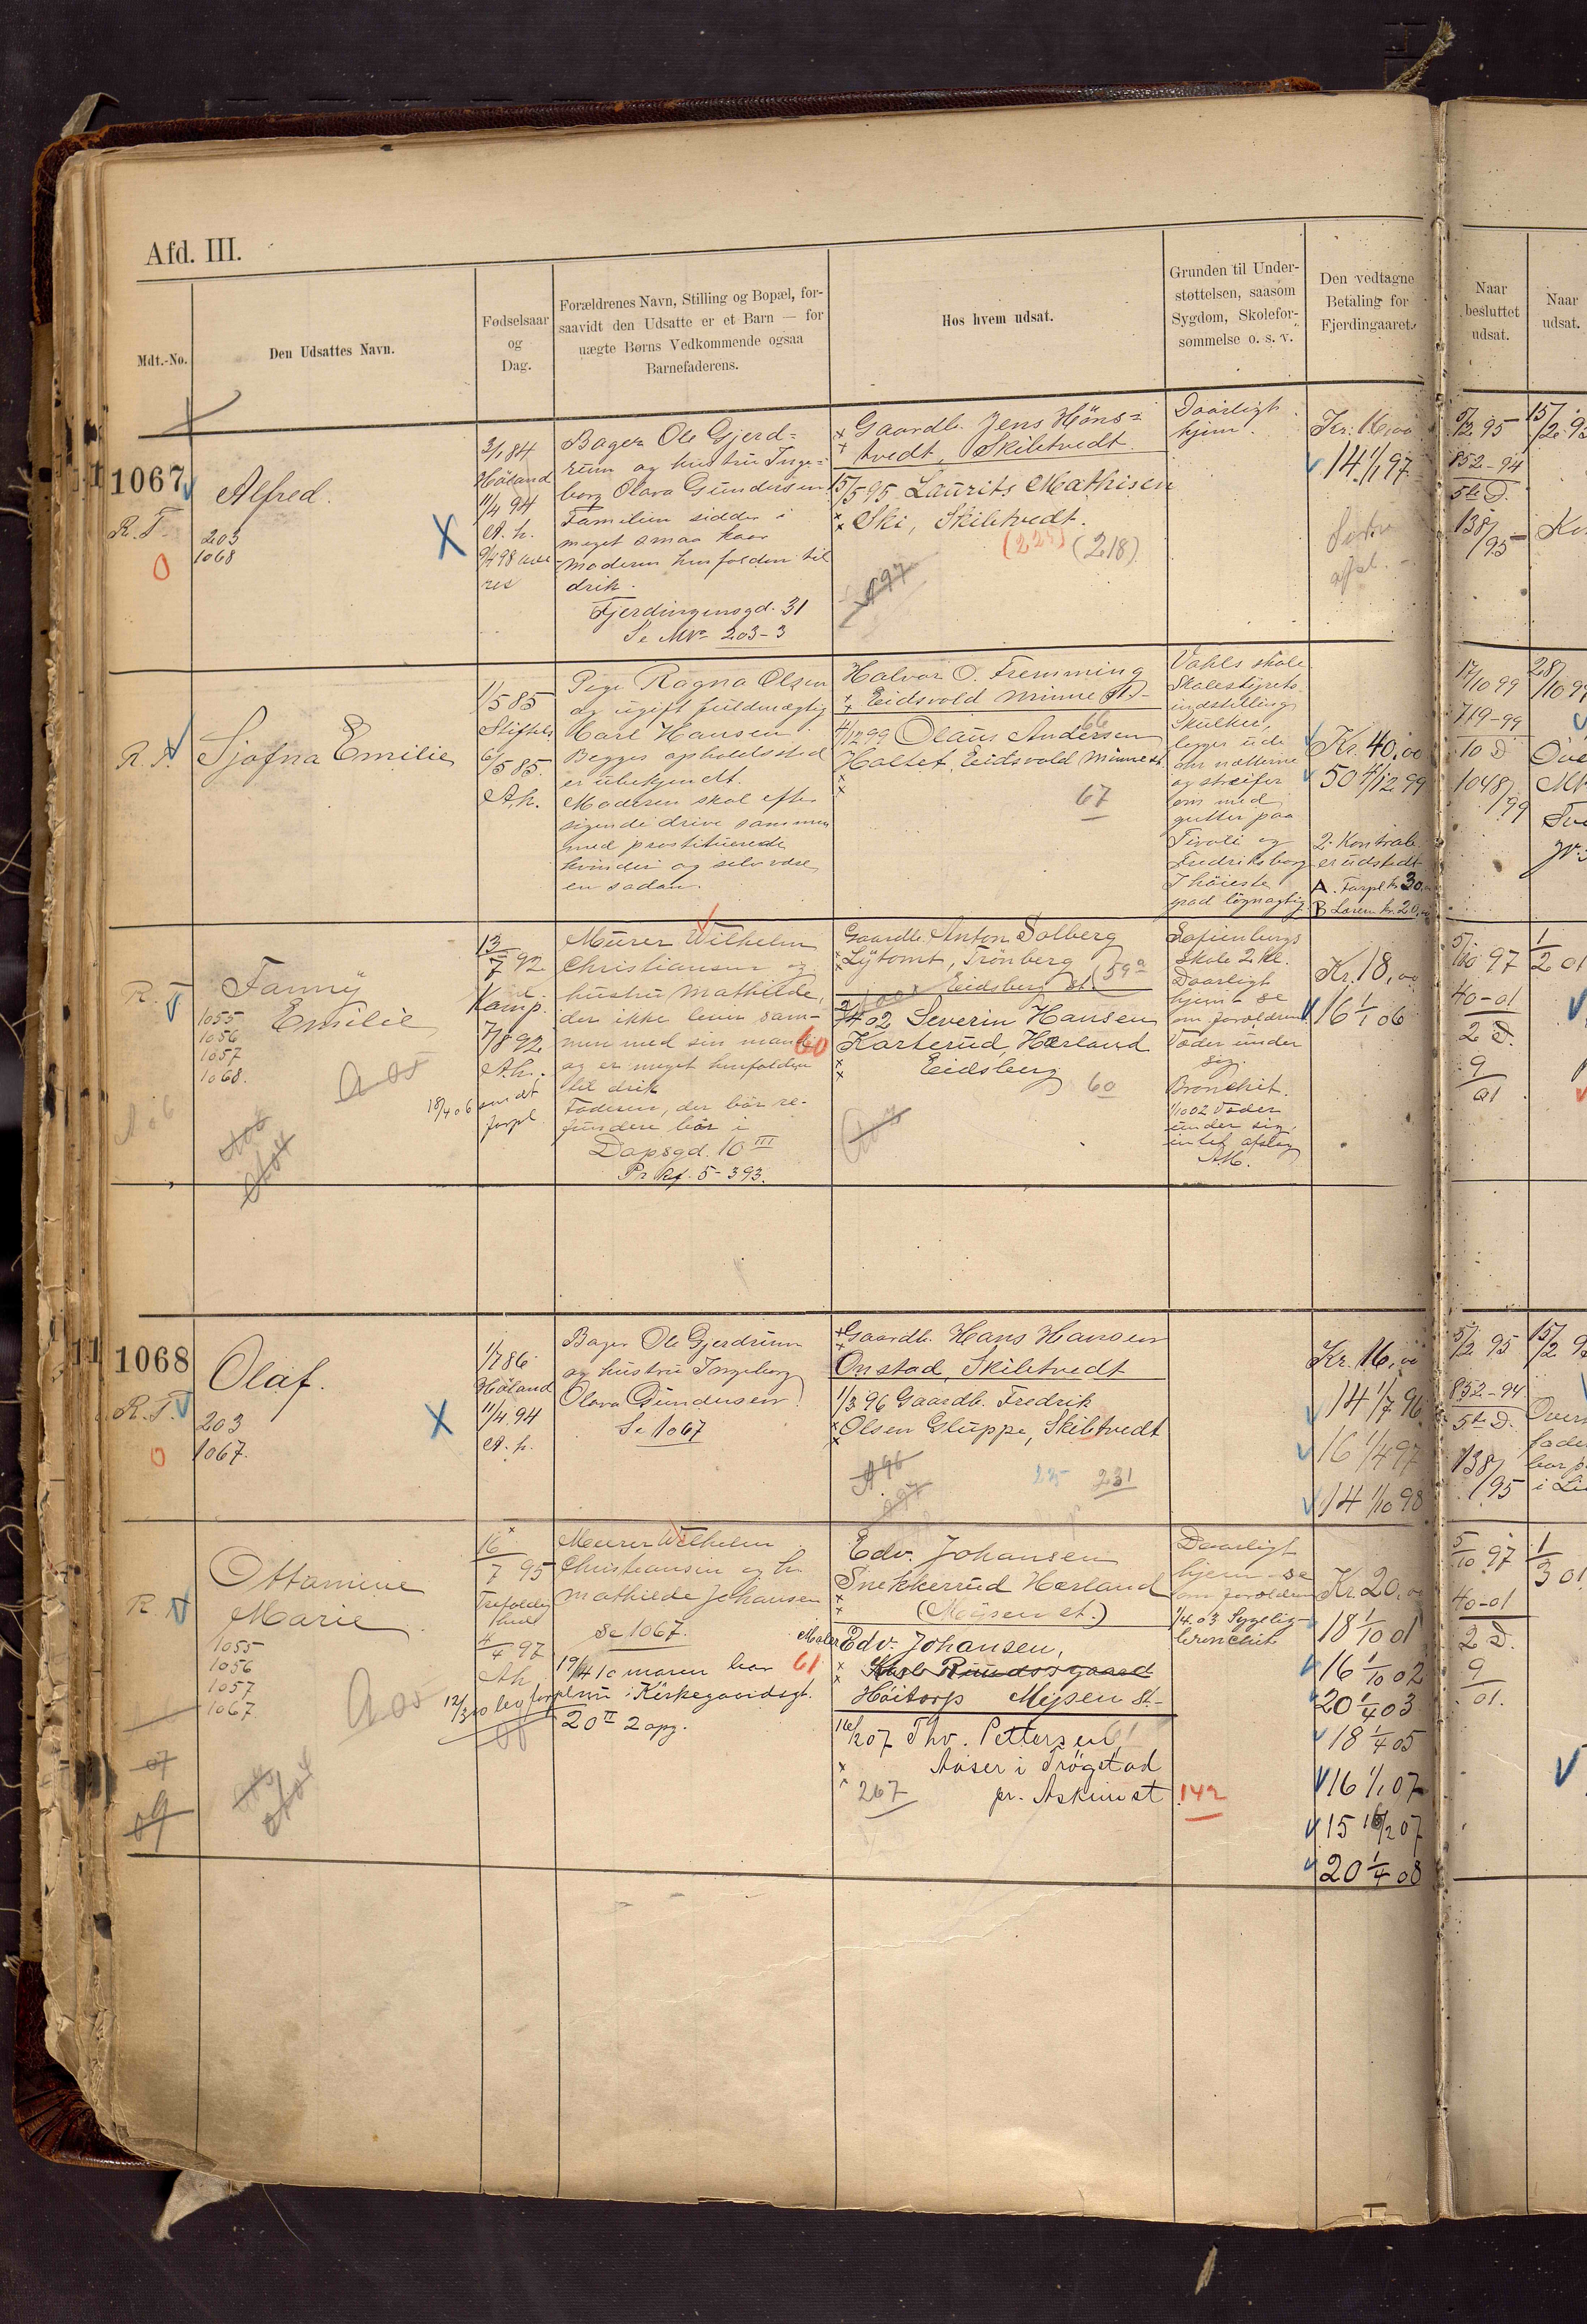 Afd. III.
Mdt.-No.
Den Udsattes Navn.
Fødselsaar
og
Dag.
Forældrenes Navn, Stilling og Bopæl, for-
saavidt den Udsatte er et Barn — for
uægte Børns Vedkommende ogsaa
Barnefaderens.
Hos hvem udsat.
Grunden til Under-
støttelsen, saasom
Sygdom, Skolefor-
sømmelse o. s. v.
Den vedtagne
Betaling for
Fjerdingaaret.
Naar
besluttet
udsat.
Naar
udsat.
1067
R. T.
0
Alfred.
203
1068
X
3/1 84
Höland
11/4 94
A. h.
Bager Ole Gjerd=
rum og hustru Inge=
borg Olava Gundersen
Familien sidder i
meget smaa kaar
moderen henfalden til
drik.
Fjerdingensgd. 31
Se No 203-3
Gaardb. Jens Höns=
tvedt, Skibtvedt
15/5 95 Laurits Mathisen
Ski, Skibtvedt.
(218)
A97
Daarligt
hjem.
Kr. 16,00
14 1/1 97
5/2 95
852-94
5te D.
138/95
R. T.
Sjofna Emilie
1/5 85
Stiftels.
6/5 85.
A.h.
Pige Ragna Olsen
og ugift fuldmægtig
Carl Hansen.
Begges opholdssted
er ubekjendt.
Moderen skal efter
sigende drive sammen
med prostituerede
kvinder og selv være
en sadan.
Halvor O. Fremming
Eidsvold Minne St.
66
4/12 99 Olaus Andersen
Holtet, Eidsvold Minne st.
67
Vahls skole
Skolestyrets
indstilling
Skulker,
ligger ude
om nætterne
og streifer
om med
gutter paa
Tivoli og
Fredriksborg
I höieste
grad lögnagtig
Kr. 40,00
50 4/12 99
2 Kontrakt
er udstedt
A. Forpl. kr. 30,00
B Lærem. kr. 20,00
17/10 99
719-99
10 D
1048/99
28/10 99
R. T.
Fanny
Emilie
1055
1056
1057
1068.
A 05
13/7 92
Kamp.
7/8 92
A.h.
18/4 06
Murer Wilhelm
Christiansen og
hustru Mathilde,
der ikke lever sam-
men med sin mand
og er meget henfalden
til drik
Faderen, der bör re-
fundere bor i
Dopsgd. 10 III
Pr. Kf. 5-393.
60
Gaardb. Anton Solberg
Lytomt, Trönberg
Eidsberg st. (59a
2/4 02 Severin Hansen
Karterud, Hærland
Eidsberg
60
Sofienbergs
Skole 2 kl.
Daarligt
hjem - se
om forældrene
Væder under
sig.
Bronchit.
1/10 02 Væder
under sig,
intet afslag
Kr. 18,00
16 1/1 06
5/10 97
40-01
2 D.
9/01
1/2 01
1068
R. T.
0
Olaf.
203
1067.
X
1/7 86
Höland
11/4 94
A. h.
Bager Ole Gjerdrum
og hustru Ingeborg
Olava Gundersen
Se 1067
Gaardb. Hans Hansen
Onstad, Skibtvedt
1/3 96 Gaardb. Fredrik
Olsen Gluppe, Skibtvedt
A96
231
Kr. 16,00
14 1/7 96
16 1/4 97
14 1/10 98
5/2 95
852-94
5te D.
138/95
R. T.
Ottomine
Marie
1055
1056
1057
1067
A 05
07
09
16/7 95
Trefoldig
hed
4/4 97
Ah
Murer Wilhelm
Christiansen og h.
Mathilde Johansen
Se 1067.
19/4 10 moren bor
nu i Kirkegaardsgt.
20 II 2 opg.
61
Edv. Johansen
Snekkerud Hærland
(Mysen st.)
Maler Edv. Johansen,
Höitorp Mysen St.
16/2 07 Thv. Pettersen
Aaser i Trögstad
267 pr. Askim st
142
Daarligt
hjem - se
om forældrene
1/4 03 Sygelig
bronchit
Kr. 20,00
18 1/10 01
16 1/10 02
20 1/4 03
18 1/4 05
16 1/1 07
15 16/2 07
20 1/4 08
5/10 97
40-01
2 D.
9/01.
1/3 01